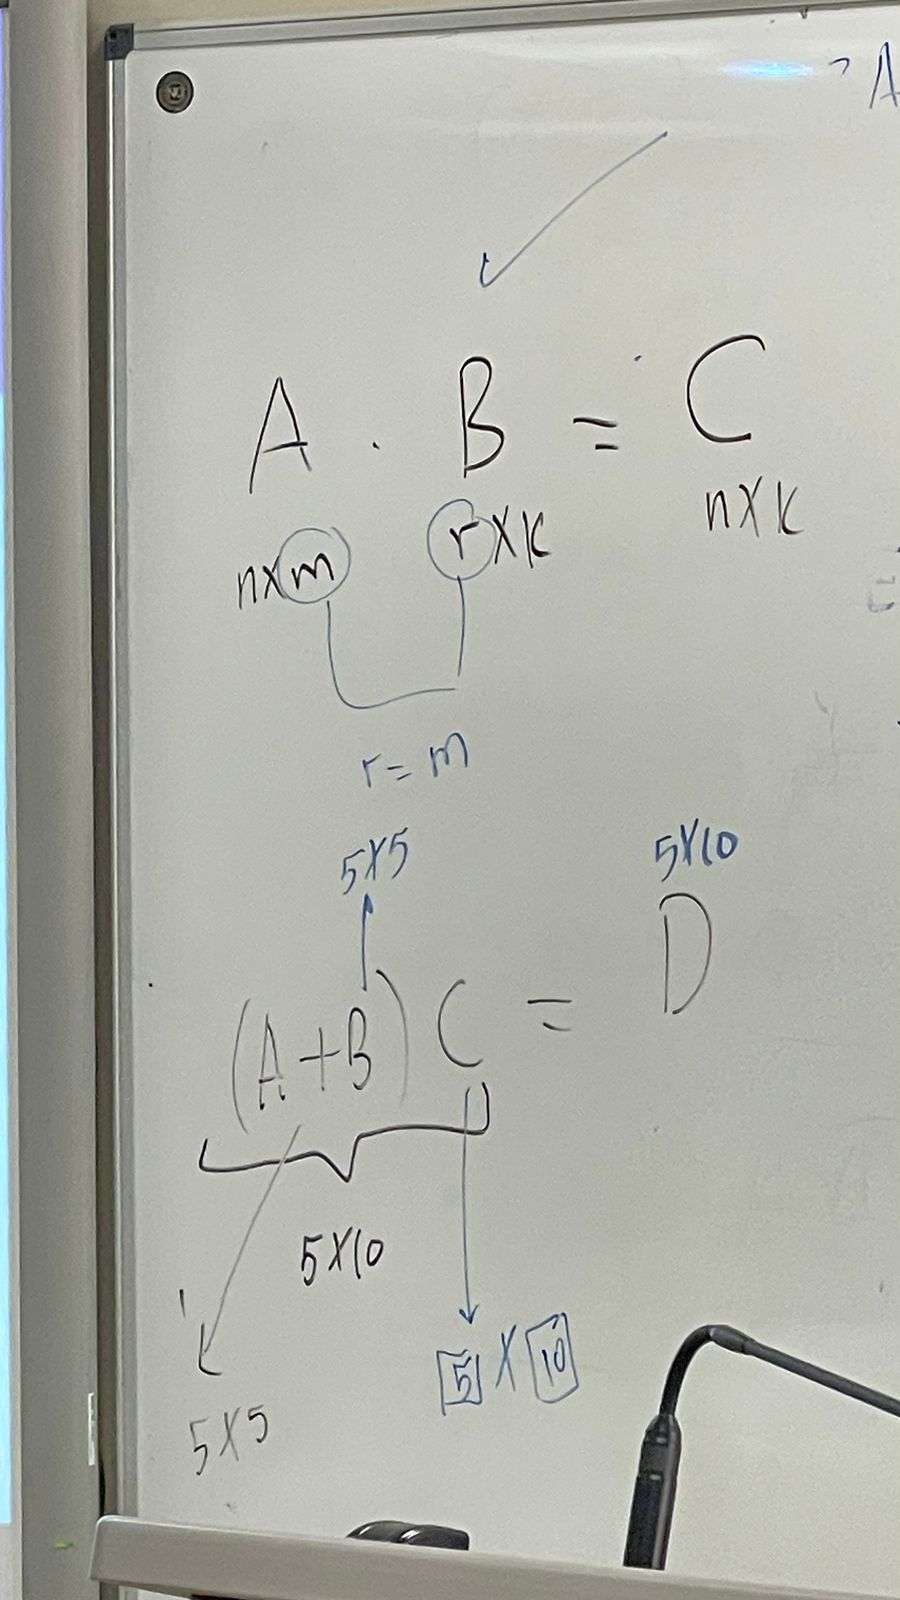 A
A · B = C
n×m r×k n×k
r = m
5×5 5×10
(A+B) C = D
5×10
5 × 10
5×5